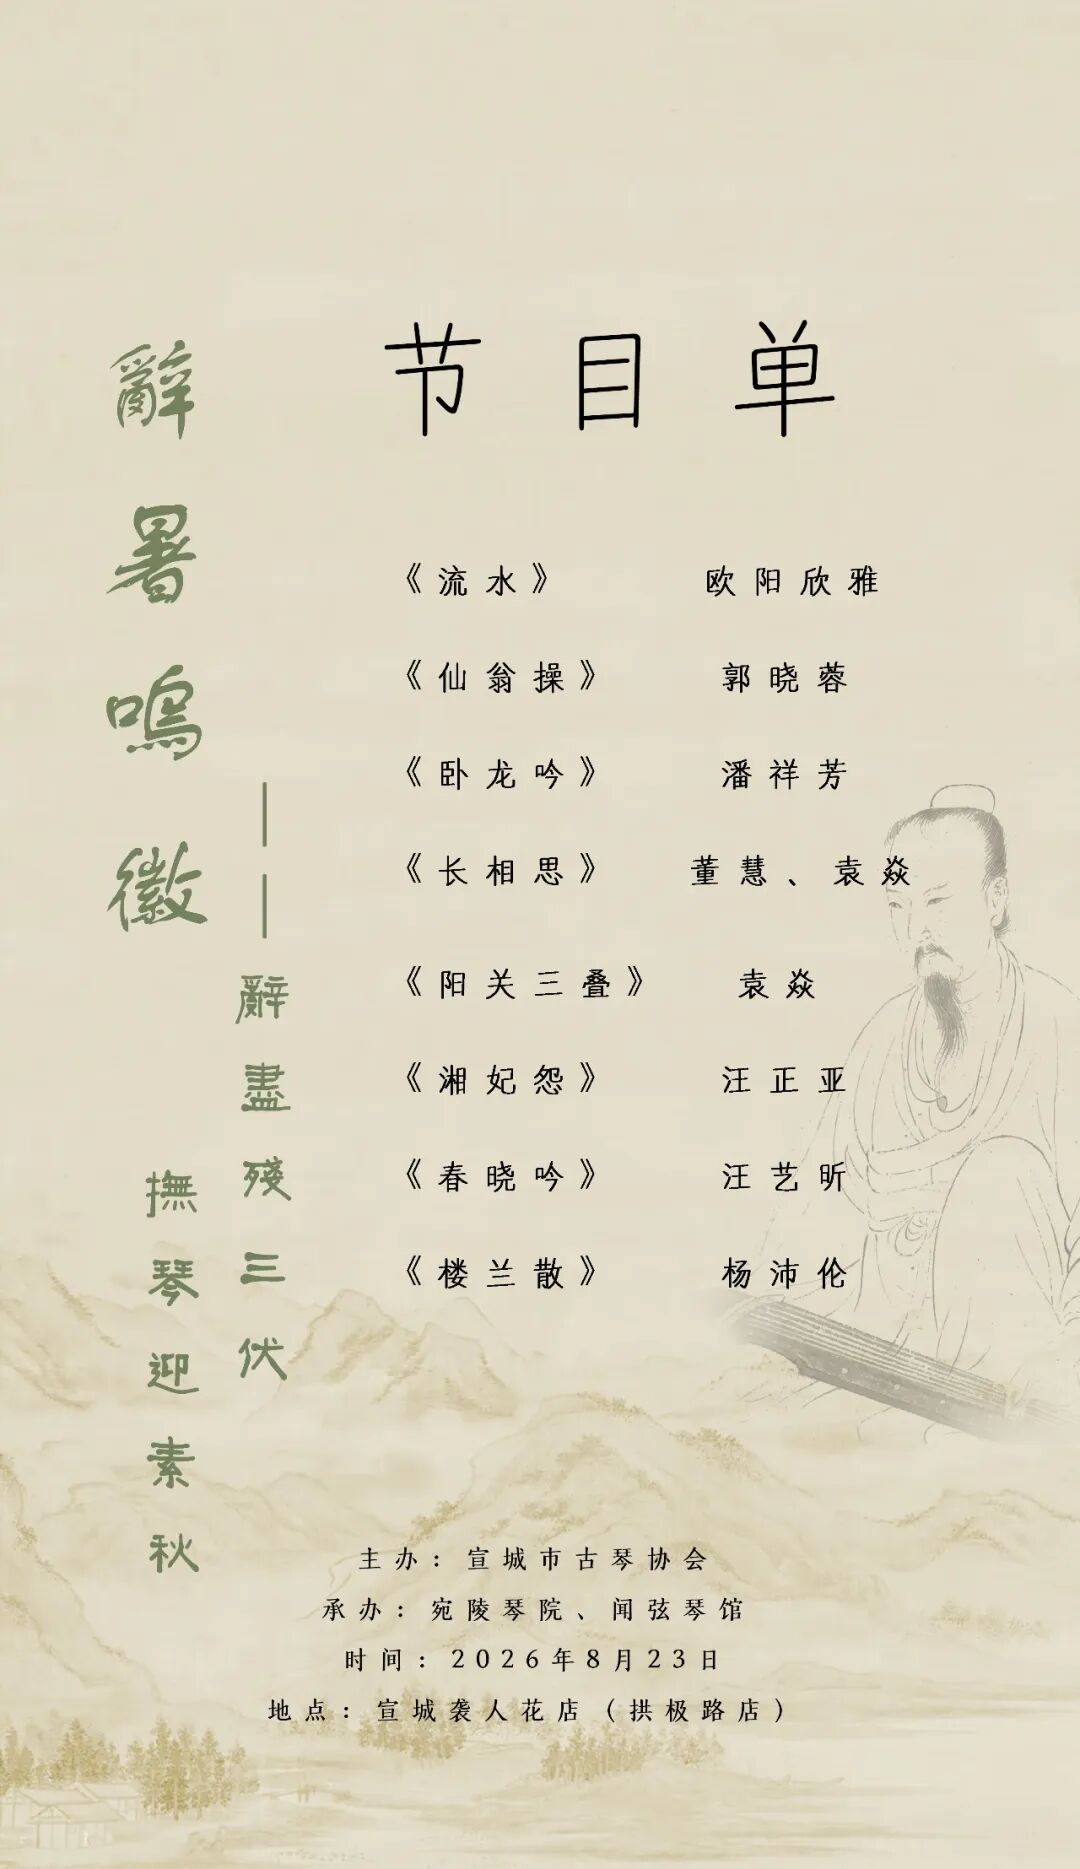 辭暑鳴徽
——辭盡殘三伏
撫琴迎素秋
节目单
《流水》 欧阳欣雅
《仙翁操》 郭晓蓉
《卧龙吟》 潘祥芳
《长相思》 董慧、袁焱
《阳关三叠》 袁焱
《湘妃怨》 汪正亚
《春晓吟》 汪艺昕
《楼兰散》 杨沛伦
主办:宣城市古琴协会
承办:宛陵琴院、闻弦琴馆
时间:2026年8月23日
地点:宣城袭人花店(拱极路店)